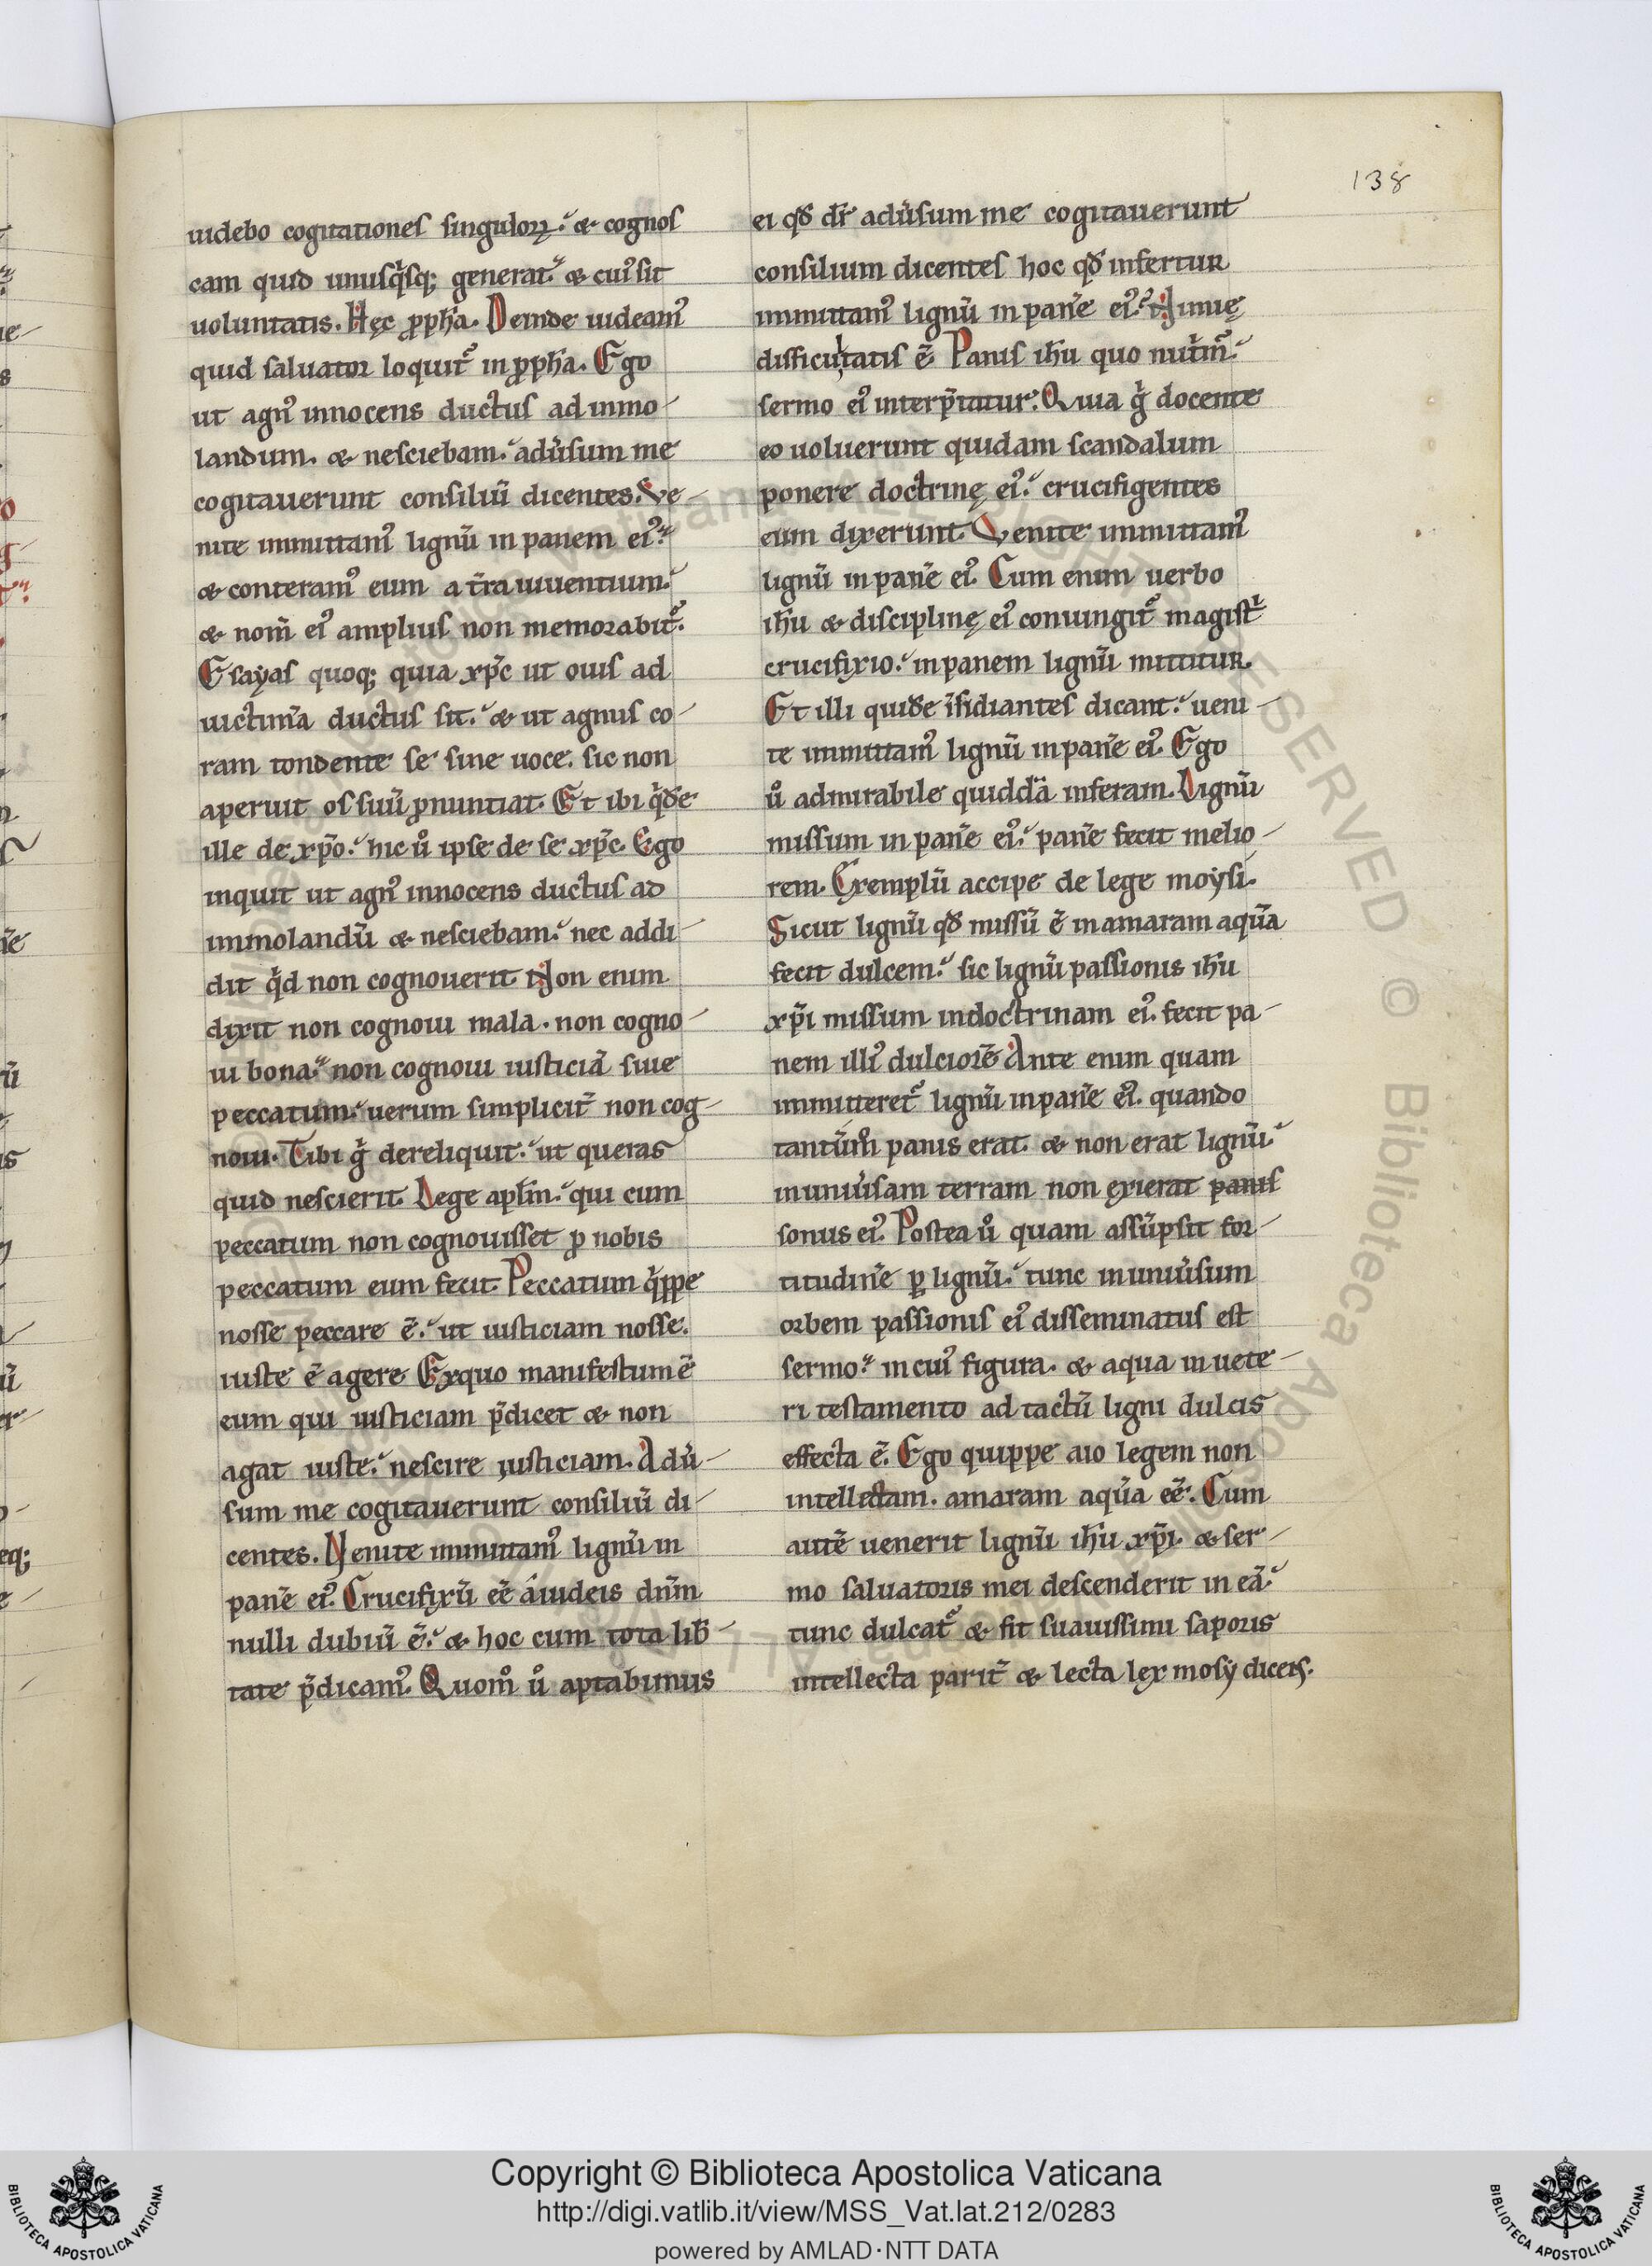 138
uidebo cogitationeſ ſinguloꝝ. & cognoſ
cam quid unuſq̇ſq; generat. & cuiꝰ ſit
uoluntatis. Hęc ꝓph̃a. Deinde uideamꝰ
quid ſaluator loquit᷑ in ꝓph̃a. Ego
ut agnꝰ innocens ductuſ ad inmo-
landum. & neſciebam. adu̓ſum me
cogitauerunt conſiliũ dicentes. Ve-
nite inmittamꝰ lignũ in panem eiꝰ.
& conteramꝰ eum a t̃ra uiuentium.
& nom̃ eiꝰ ampliuſ non memorabit᷑.
Eſayaſ quoq; quia xp̃c ut ouiſ ad
uictim̃a ductuſ ſit. & ut agnuſ co-
ram tondente ſe ſine uoce. ſic non
aperuit oſ ſuũ ꝓnuntiat. Et ibi q̇de
ille de xp̃o. hic u̓o ipſe de ſe xp̃c. Ego
inquit ut agnꝰ innocens ductuſ ad
immolandũ & neſciebam. nec addi-
dit q̇d non cognouerit. Non enim
dixit non cognoui mala. non cogno-
ui bona. non cognoui iuſticiã ſiue
peccatum. uerum ſimplicit̃ non cog-
noui. Tibi g̊ dereliquit. ut queras
quid neſcierit. Lege apl̃m. qui cum
peccatum non cognouiſſet ꝓ nobis
peccatum eum fecit. Peccatum q̇ppe
noſſe peccare ẽ. ut iuſticiam noſſe.
iuſte ẽ agere. Ex quo manifeſtum ẽ
eum qui iuſticiam p̃dicet & non
agat iuſte. neſcire iuſticiam. Adu̓-
ſum me cogitauerunt conſiliũ di-
centes. Venite inmittamꝰ lignũ in
panẽ eiꝰ. Crucifixũ eẽ a iudeis dñm
nulli dubiũ ẽ. & hoc cum tota lib̃-
tate p̃dicamꝰ. Quom̊ u̓o aptabimus
ei qđ dr̃ adu̓ſum me cogitauerunt
conſilium dicenteſ hoc qđ infertur
inmittamꝰ lignũ in panẽ eiꝰ. Nimię
difficultatiſ ẽ. Paniſ ih̃u quo nut̓im᷑.
ſermo eiꝰ interp̃tatur. Quia g̊ docente
eo uoluerunt quidam ſcandalum
ponere doctrinę eiꝰ. crucifigentes
eum dixerunt. Venite inmittamꝰ
lignũ in panẽ eiꝰ. Cum enim uerbo
ih̃u & diſciplinę eiꝰ coniungit᷑ magiſt̓
crucifixio. in panem lignũ mittitur.
Et illi quidẽ ĩſidianteſ dicant. ueni-
te inmittamꝰ lignũ in panẽ eiꝰ. Ego
u̓o admirabile quiddã inferam. Lignũ
miſſum in panẽ eiꝰ. panẽ fecit melio-
rem. Exemplũ accipe de lege moyſi.
Sicut lignũ qđ miſſũ ẽ in amaram aquã
fecit dulcem. ſic lignũ paſſionis ih̃u
xp̃i miſſum in doctrinam eiꝰ. fecit pa-
nem illiꝰ dulciorẽ. Ante enim quam
inmitteret᷑ lignũ in panẽ eiꝰ. quando
tantũm̊ panis erat. & non erat lignũ.
in uniu̓ſam terram non exierat paniſ
ſonus eiꝰ. Poſtea u̓o quam aſſũpſit for-
titudinẽ ꝑ lignũ. tunc in uniu̓ſum
orbem paſſioniſ eiꝰ diſſeminatuſ eſt
ſermo. in cuiꝰ figura. & aqua in uete-
ri teſtamento ad tactũ ligni dulcis
effecta ẽ. Ego quippe aio legem non
intellectam. amaram aquã eẽ. Cum
autẽ uenerit lignũ ih̃u xp̃i. & ſer-
mo ſaluatoris mei deſcenderit in eã.
tunc dulcat᷑ & fit ſuauiſſimi ſaporis
intellecta parit̃ & lecta lex moſy diceiſ.
Copyright © Biblioteca Apostolica Vaticana
http://digi.vatlib.it/view/MSS_Vat.lat.212/0283
powered by AMLAD·NTT DATA
BIBLIOTECA APOSTOLICA VATICANA
BIBLIOTECA APOSTOLICA VATICANA